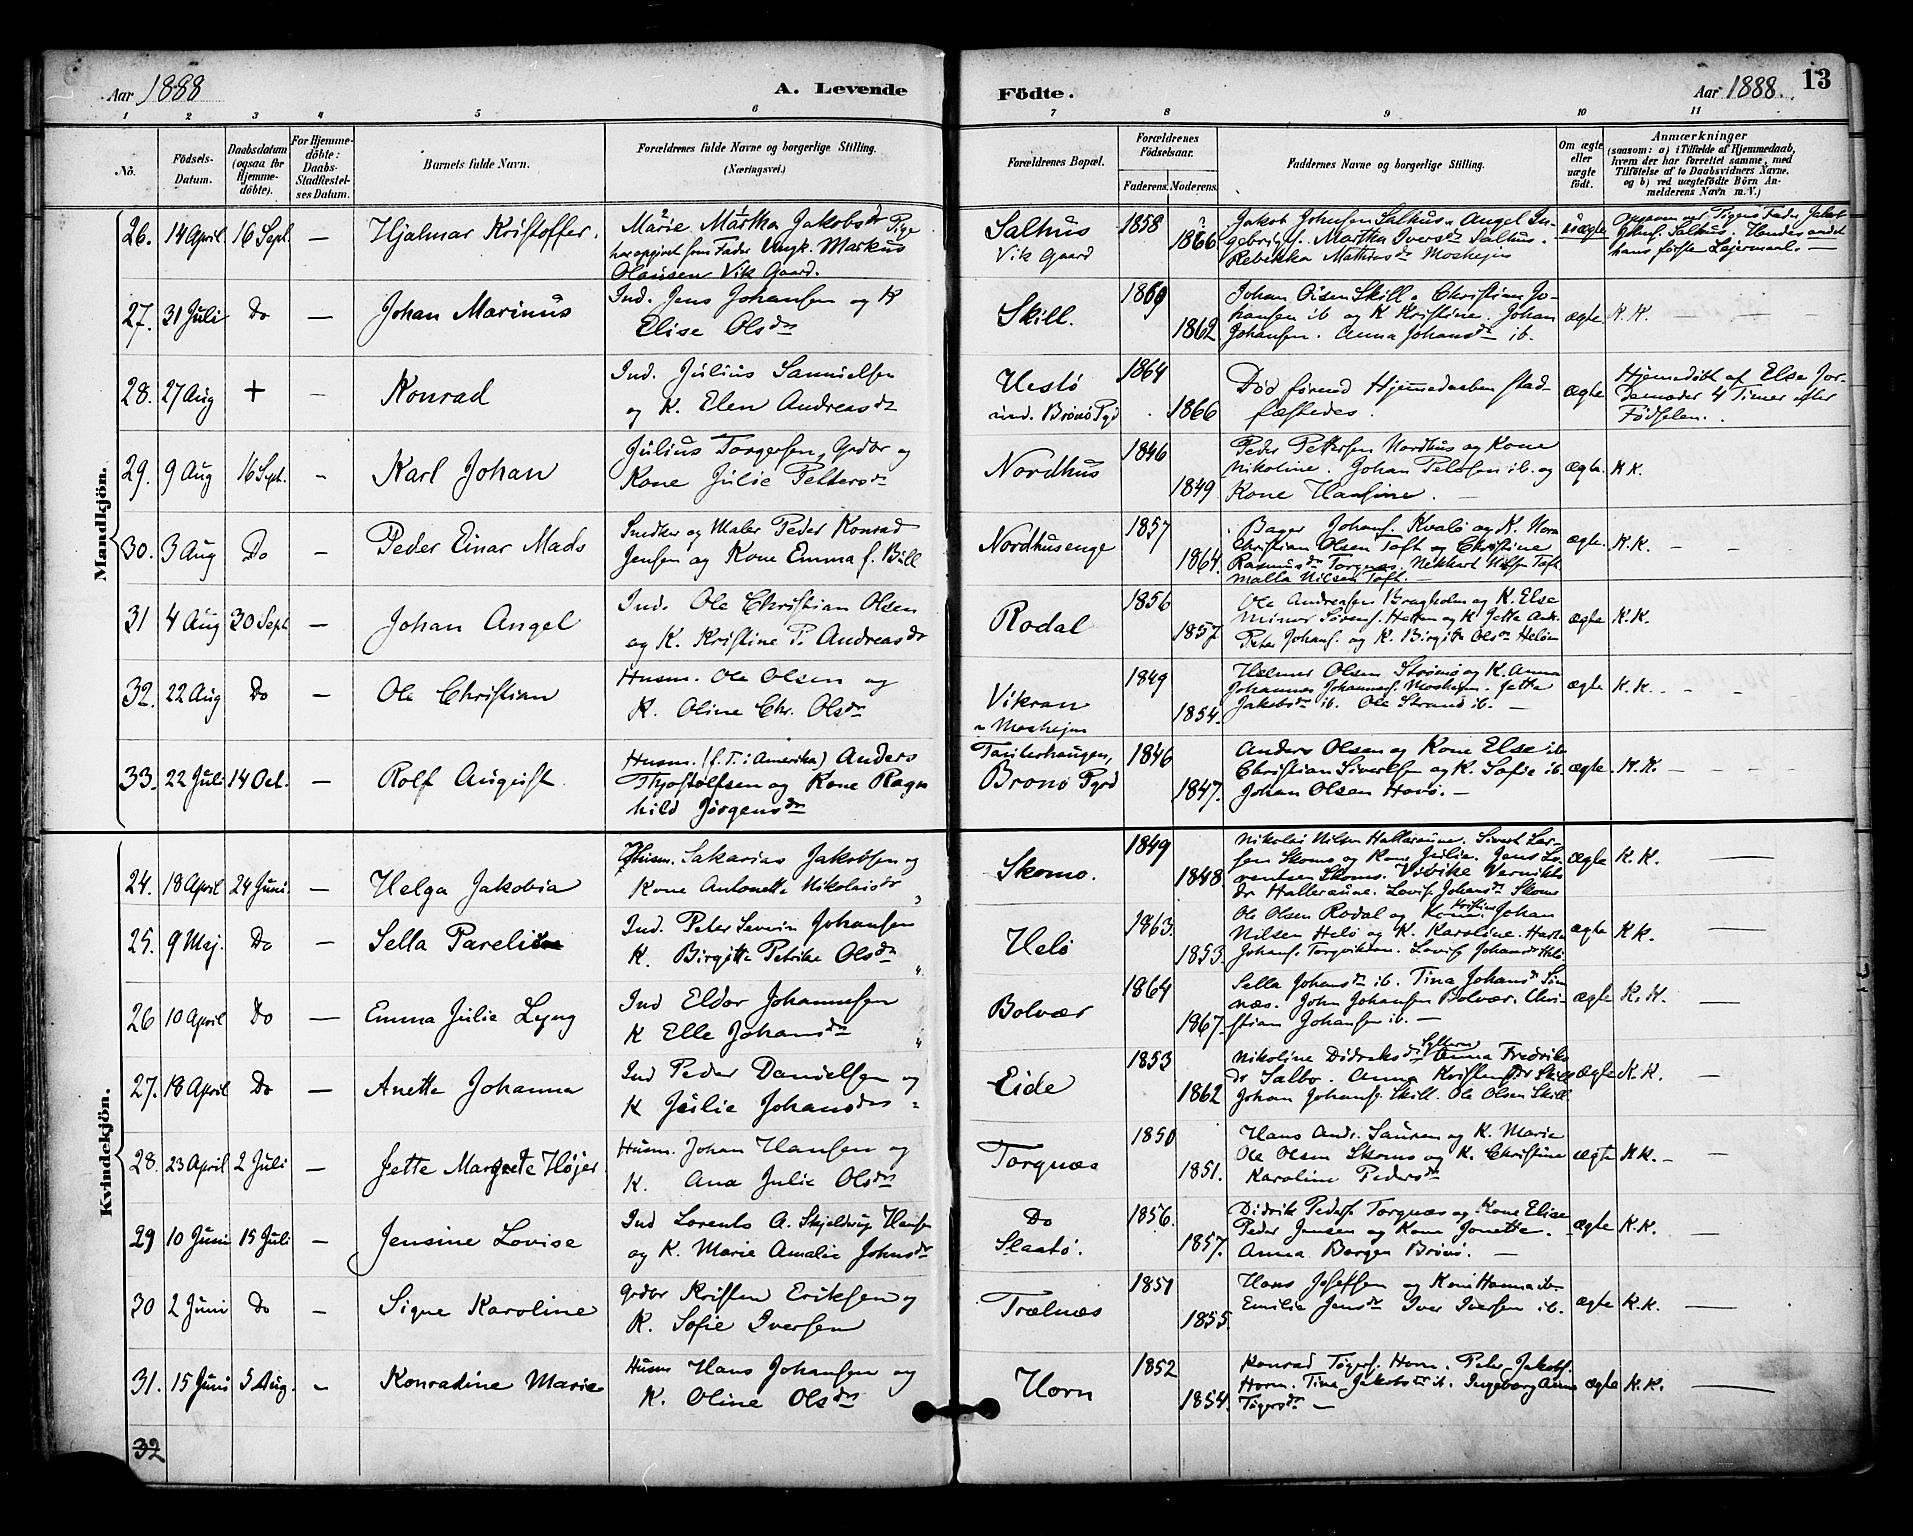 Aar 1888 A. Levende Födte. Aar 1888. 13
1 2 3 4 5 6 7 8 9 10 11
No. Födsels-Datum. Daabsdatum (ogsaa för Hjemmedöbte). For Hjemmedöbte: Daabs-Stadfæstelses Datum. Barnets fulde Navn. Forældrenes fulde Navne og borgerlige Stilling. (Næringsvei.) Forældrenes Bopæl. Forældrenes Födselsaar. Faderens. Moderens. Faddernes Navne og borgerlige Stilling. Om ægte eller uægte födt. Anmærkninger (saasom: a) i Tilfælde af Hjemmedaab, hvem der har forrettet samme, med Tilföielse af to Daabsvidners Navne, og b) ved uægtefödte Börn Anmelderens Navn m. V.)
Mandkjön.
26. 14 April 16 Sept. — Hjalmar Kristoffer. Marie Martha Jakobsdr Pige
har opgivet som Fader Ungk. Markus
Olausen Vik Gaard.
Salhus
Vik Gaard
1858
1866
Jakob Johnsen Salhus. Angel In-
gebrigs. Martha Iversdr Salhus.
Rebekka Mathiasdr Mosheim
uægte
27. 31 Juli Do — Johan Marinus Ind. Jens Johansen og K
Elise Olsdr
Skill.
1860
1862
Johan Olsen Skill. Christian Jo-
hansen ib og K Kristine. Johan
Johansen. Anna Johansdr ib.
ægte. K.K. — — —
28. 27 Aug + — Konrad Ind. Julius Samuelsen
og K. Elen Andreasdr
Hestø
ind. Brønø Pgd
1864
1866
Død forend Hjemmedaaben stad-
fæstedes.
ægte Hjemmedøbt af Else Jor-
demoder 4 Timer efter
Födselen.
29. 9 Aug 16 Sept. — Karl Johan Julius Torgersen, Grdbr og
Kone Julie Pettersdr
Nordhus
1846
1849
Peder Pettersen Nordhus og Kone
Nikoline. Johan ib. og
Kone Hansine. —
ægte. K K.
30. 3 Aug Do — Peder Einar Mads Snedker og Maler Peder Konrad
Jensen og Kone Emma f. Bull
Nordhusenge
1857
1864.
Bager Johans. Kvalø og K. Nora
Christian Olsen Toft og Christine
Rasmusdr Torgnæs. Nikhart Nilsen Toft
Malla Nilsen Toft. —
ægte. K.K. — — —
31 4 Aug 30 Sept — Johan Angel Ind. Ole Christian Olsen
og K. Kristine P. Andreasdr
Rodal
1856
1857
Ole Andreasen Bragholm og K. Else
Minor Sörens. Hatten og K Jette
Peter Johans. og K. Birgitte Olsdr Heløen
ægte K.K.
32. 22 Aug Do — Ole Christian Husm. Ole Olsen og
K. Oline Chr. Olsdr
Vikran
Mosheim
1849
1854.
Helmer Olsen Strömö og K. Anna
Johannes Johannes. Mosheim. Jette
Jakobsdr ib. Ole Strand ib. —
ægte K.K. — — —
33. 22 Juli 14 Oct. — Rolf August. Husm. (f. T. i Amerika) Anders
Thjostolfsen og Kone Ragn
hild Jörgensdr
Tauterhaugen,
Brønø Pgd
1846
1847.
Anders Olsen og Kone Else ib
Christian Sivertsen og K. Sofie ib.
Johan Olsen Havø. —
ægte. K.K. — — —
Kvindekjön.
24. 18 April 24 Juni. — Helga Jakobia Husm. Sakarias Jakobsen og
Kone Antonette Nikolaisdr
Skomo.
1849
1848.
Nikolai Nilsen Halleraune. Sivert Lar-
sen Skomo og Kone Julie. Jens Lo-
rentsen Skomo. Vivike
dr Halleraune. Lovise Johansdr Skomo
ægte K.K. —
25. 9 Maj. Do — Sella Pareline Ind. Peter Severin Johansen
K. Birgitte Petrike Olsdr
Helø
1863.
1853.
Ole Olsen Rodal og Kone Kristine. Johan
Nilsen Helø og K. Karoline.
Johans. Torgvikdan. Lovise Johansdr Helø
ægte K K. —
26 10 April Do — Emma Julie Lyng Ind Eldor Johannesen
K Elle Johansdr
Bolvær
1864
1867
Sella Johansdr ib. Tina Johansdr
næs. John Johansen Bolvær. Chri-
stian Johansen ib. —
ægte K.K. —
27. 18 April Do — Anette Johanna Ind Peder Danielsen og
K Julie Johansdr
Eide
1853
1862
Nikoline Didriksdr Anna Fredriks
dr Salbo. Anna Kristendr Skill
Johan Johans. Skill. Ole Olsen Skill
ægte K.K. —
28. 23 April 2 Juli — Jette Margrete Højer. Husm. Johan Hansen og
K. Ana Julie Olsdr
Torgnæs
1850
1851.
Hans Andr. Sausen og K. Marie
Ole Olsen Skomo og K. Christine
Karoline Pedersdr
ægte K K. — —
29 10 Juni 15 Juli — Jensine Lovise Ind Lorents A. Skjeldrup Hansen
og K. Marie Amalie Johnsdr
Do
Slaatø.
1856.
1857.
Didrik Peders. Torgnæs og Kone Elise
Peder Jensen og Kone Jonette.
Anna Bergen Brønø. —
ægte K.K. —
30 2 Juni Do — Signe Karoline Grdbr Kristen Eriksen og
K. Sofie Iversen
Trælnæs
1851
1855.
Hans Josefsen og Kone Hanna ib.
Emilie Jensdr Iver Iversen ib.
ægte K.K. —
31. 15 Juni 5 Aug. — Konradine Marie Husm Hans Johansen og
K. Oline Olsdr
Horn
1852
1854.
Konrad Tøgers. Horn. Peter Jakobs.
Horn. Tina Jakobsdr ib. Ingeborg Anne
Tøgersdr —
ægte K.K. —
32